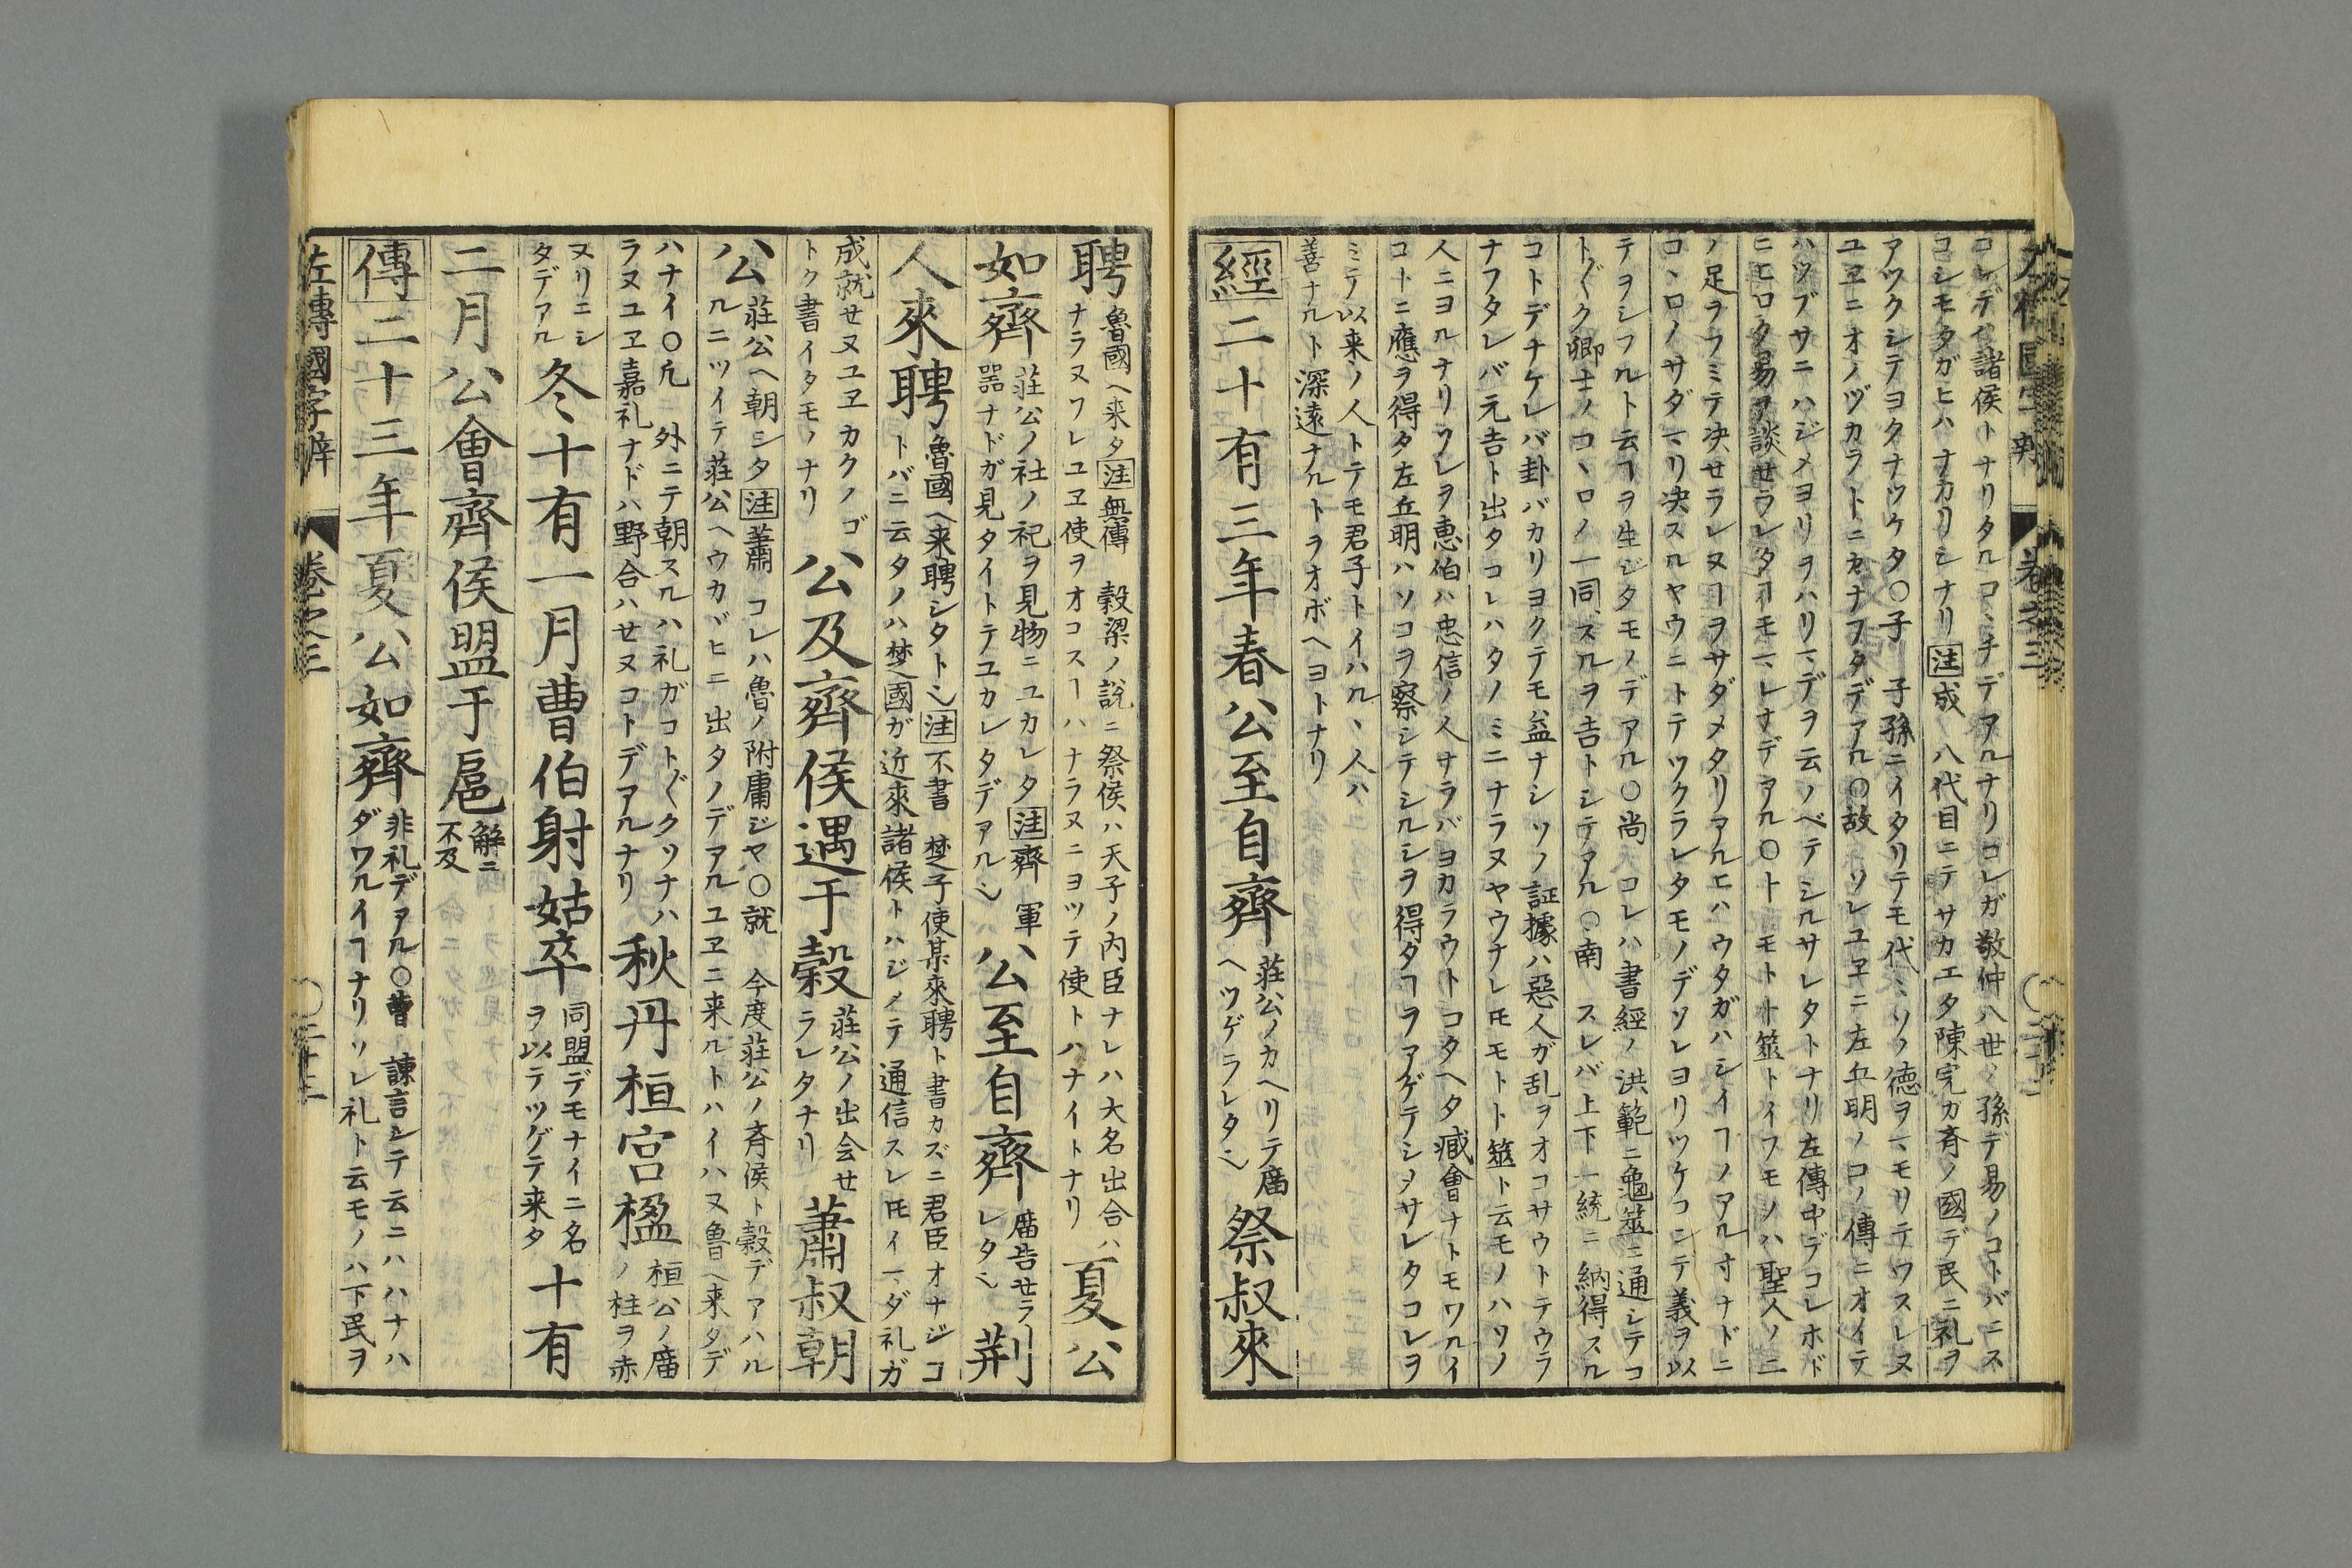 コレデイ諸侯トナリタルコヽチデアルナリコレガ敬仲八世ノ孫デ易ノコトバニス
コシモタガヒハナカリシナリ注成 八代目ニテサカエタ陳完ガ斉ノ國デ民ニ礼ヲ
アツクシテヨクナツケタ○子 子孫ニイタリテモ代〻ソノ德ヲマモリテワスレヌ
ユヱニオノヅカラトニカナフタデアル○故 ソレユヱニ左丘明ノコノ傳ニオイテ
ハツブサニハジメヨリヲハリマデヲ云ノベテシルサレタトナリ左傳中デコレホド
ニヒロク易ヲ談セラレタヿモマレナデアル○卜 モト卜筮トイフモノハ聖人ノ二
ノ足ヲフミテ决セラレヌヿヲサダメタリアルヒハウタガハシイヿノアル寸ナドニ
コヽロノサダマリ决スルヤウニトテツクラレタモノデソレヨリツケコンテ義ヲ以
テヲシフルト云ヿヲ生ジタモノデアル○尚 コレハ書經ノ洪範ニ龜筮ニ通シテコ
ト〴〵ク卿士ノコヽロノ一同スルヲ吉トシテアル○南 スレバ上下一統ニ納得スル
コトデナケレバ卦バカリヨクテモ益ナシソノ証據ハ惡人ガ乱ヲオコサウトテウラ
ナフタレバ元吉ト出タコレハタノミニナラヌヤウナレ𪜈モト卜筮ト云モノハソノ
人ニヨルナリワレヲ惠伯ハ忠信ノ人ナラバヨカラウトコタヘタ臧會ナトモワルイ
コトニ應ヲ得タ左丘明ハソコヲ察シテシルシヲ得タヿヲアゲテシメサレタコレヲ
ミテ以来ノ人トテモ君子トイハルヽ人ハ
善ナルト深遠ナルトヲオボヘヨトナリ
經二十有三年春公至自齊 莊公ノカヘリテ廟
ヘツゲラレタ也 祭叔來
聘 魯國ヘ来タ注無傳 穀梁ノ説ニ祭侯ハ天子ノ内臣ナレハ大名出合ハ
ナラヌワレユヱ使ヲオコスヿハナラヌニヨツテ使トハナイトナリ 夏公
如齊 莊公ノ社ノ祀ヲ見物ニユカレタ注齊 軍
器ナドガ見タイトテユカレタデアル也 公至自齊 廟告せラ
レタ也 荆
人來聘 魯國ヘ来聘シタト也注不書 楚子使某來聘ト書カズニ君臣オナジコ
トバニ云タノハ楚國ガ近來諸侯トハジメテ通信スレ𪜈イマダ礼ガ
成就せヌユヱカクノゴ
トク書イタモノナリ 公及齊侯遇于穀 莊公ノ出会せ
ラレタナリ 蕭叔朝
公 莊公ヘ朝シタ注蕭 コレハ魯ノ附庸ジヤ○就 今度莊公ノ斉侯ト穀デアハル
ルニツイテ莊公ヘウカヾヒニ出タノデアルユヱニ来ルトハイハヌ魯ヘ来タデ
ハナイ○凡 外ニテ朝スルハ礼ガコト〴〵クソナハ
ラヌユヱ嘉礼ナドハ野合ハせヌコトデアルナリ 秋丹桓宮楹 桓公ノ廟
ノ柱ヲ赤
ヌリニシ
タデアル 冬十有一月曹伯射姑卒 同盟デモナイニ名
ヲ以テツゲテ来タ 十有
二月公會齊侯盟于扈 解ニ
不及
傳二十三年夏公如齊 非礼デアル○曹 諫言シテ云ニハハナハ
ダワルイヿナリソレ礼ト云モノハ下民ヲ
左傳國字辨 卷之三